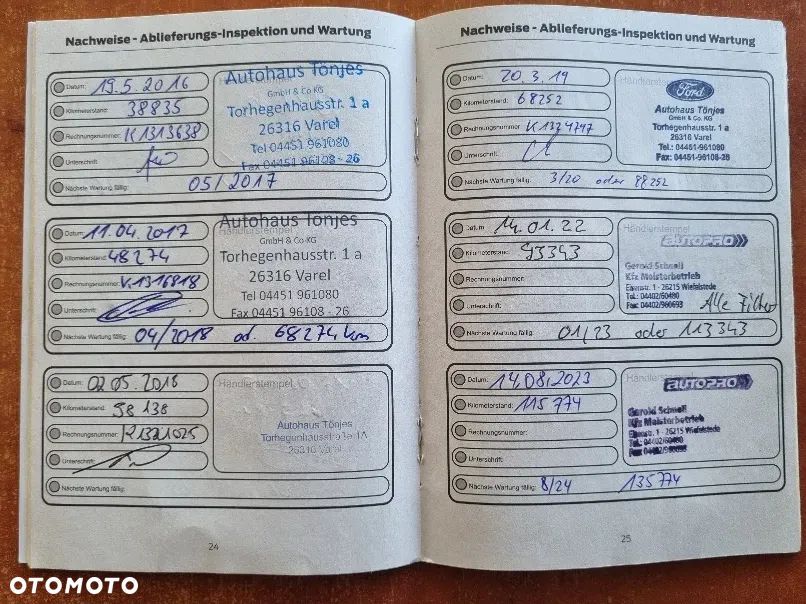 Nachweise - Ablieferungs-Inspektion und Wartung
Datum: 19.5.2016
Kilometerstand: 38835
Rechnungsnummer: K1313638
Unterschrift:
Nächste Wartung fällig: 05/2017
Autohaus Tönjes
GmbH & Co KG
Torhegenhausstr. 1 a
26316 Varel
Tel 04451 961080
Fax 04451 96108 - 26
Datum: 11.04.2017
Kilometerstand: 48274
Rechnungsnummer: K1316818
Unterschrift:
Nächste Wartung fällig: 04/2018 od. 68274 km
Händlerstempel
Autohaus Tönjes
GmbH & Co KG
Torhegenhausstr. 1 a
26316 Varel
Tel 04451 961080
Fax 04451 96108 - 26
Datum: 02.05.2018
Kilometerstand: 58 138
Rechnungsnummer: K1321025
Unterschrift:
Nächste Wartung fällig:
Händlerstempel
Autohaus Tönjes
Torhegenhausstraße 1A
26316 Varel
24
Nachweise - Ablieferungs-Inspektion und Wartung
Datum: 20.3.19
Kilometerstand: 68252
Rechnungsnummer: K1324747
Unterschrift:
Nächste Wartung fällig: 3/20 oder 88252
Händlerstempel
Ford
Autohaus Tönjes
GmbH & Co KG
Torhegenhausstr. 1 a
26316 Varel
Tel.: 04451-961080
Fax: 04451-96108-26
Datum: 14.01.22
Kilometerstand: 93343
Rechnungsnummer:
Unterschrift:
Nächste Wartung fällig: 01/23 oder 113343
Händlerstempel
AUTOPRO
Gerold Schnell
Kfz Meisterbetrieb
Eisenstr. 1 - 26215 Wiefelstede
Tel.: 04402/60480
Fax: 04402/960693
Alle Filter
Datum: 14.08.2023
Kilometerstand: 115774
Rechnungsnummer:
Unterschrift:
Nächste Wartung fällig: 8/24 135774
Händlerstempel
AUTOPRO
Gerold Schnell
Kfz Meisterbetrieb
Eisenstr. 1 - 26215 Wiefelstede
Tel.: 04402/60480
Fax: 04402/960693
25
OTOMOTO